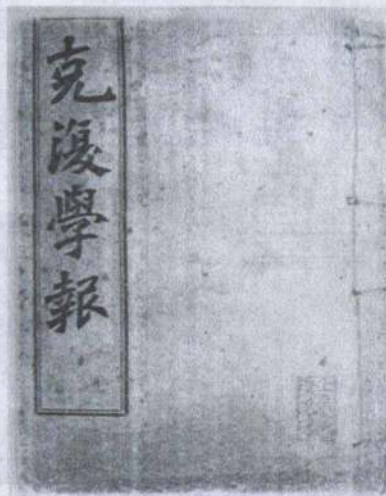 克復學報